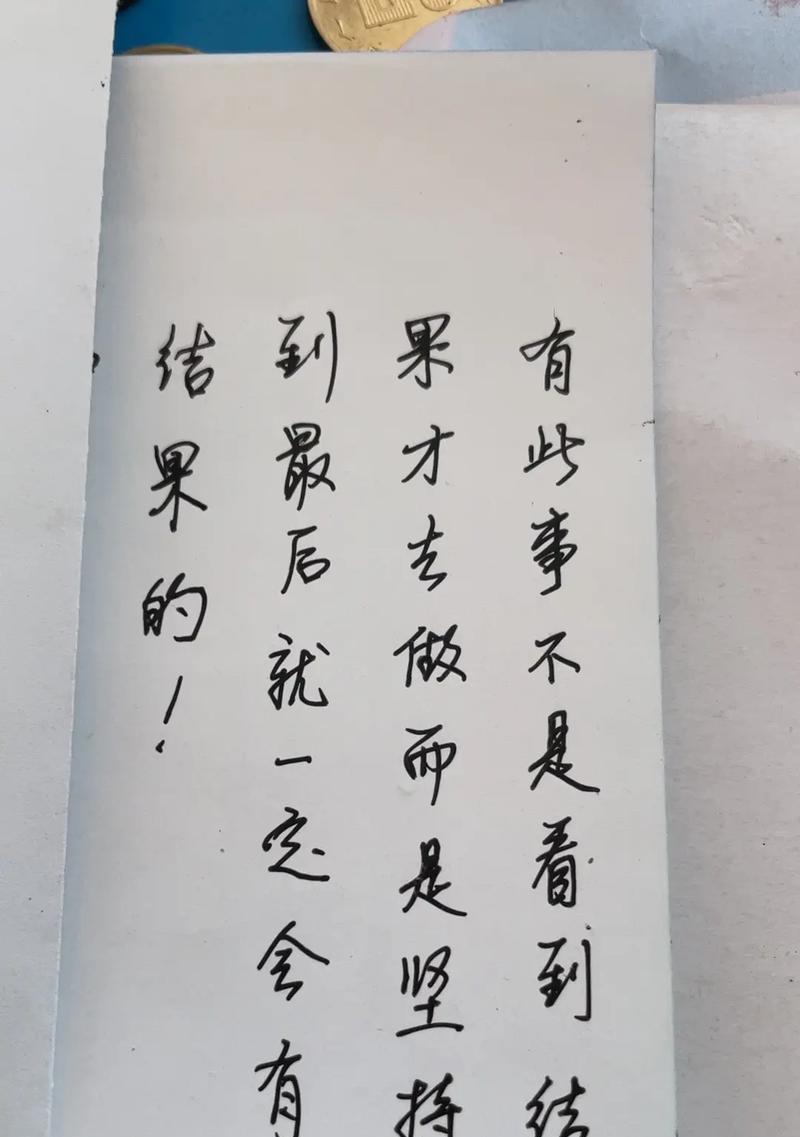 有些事不是看到结
果才去做而是坚持
到最后就一定会有
结果的！